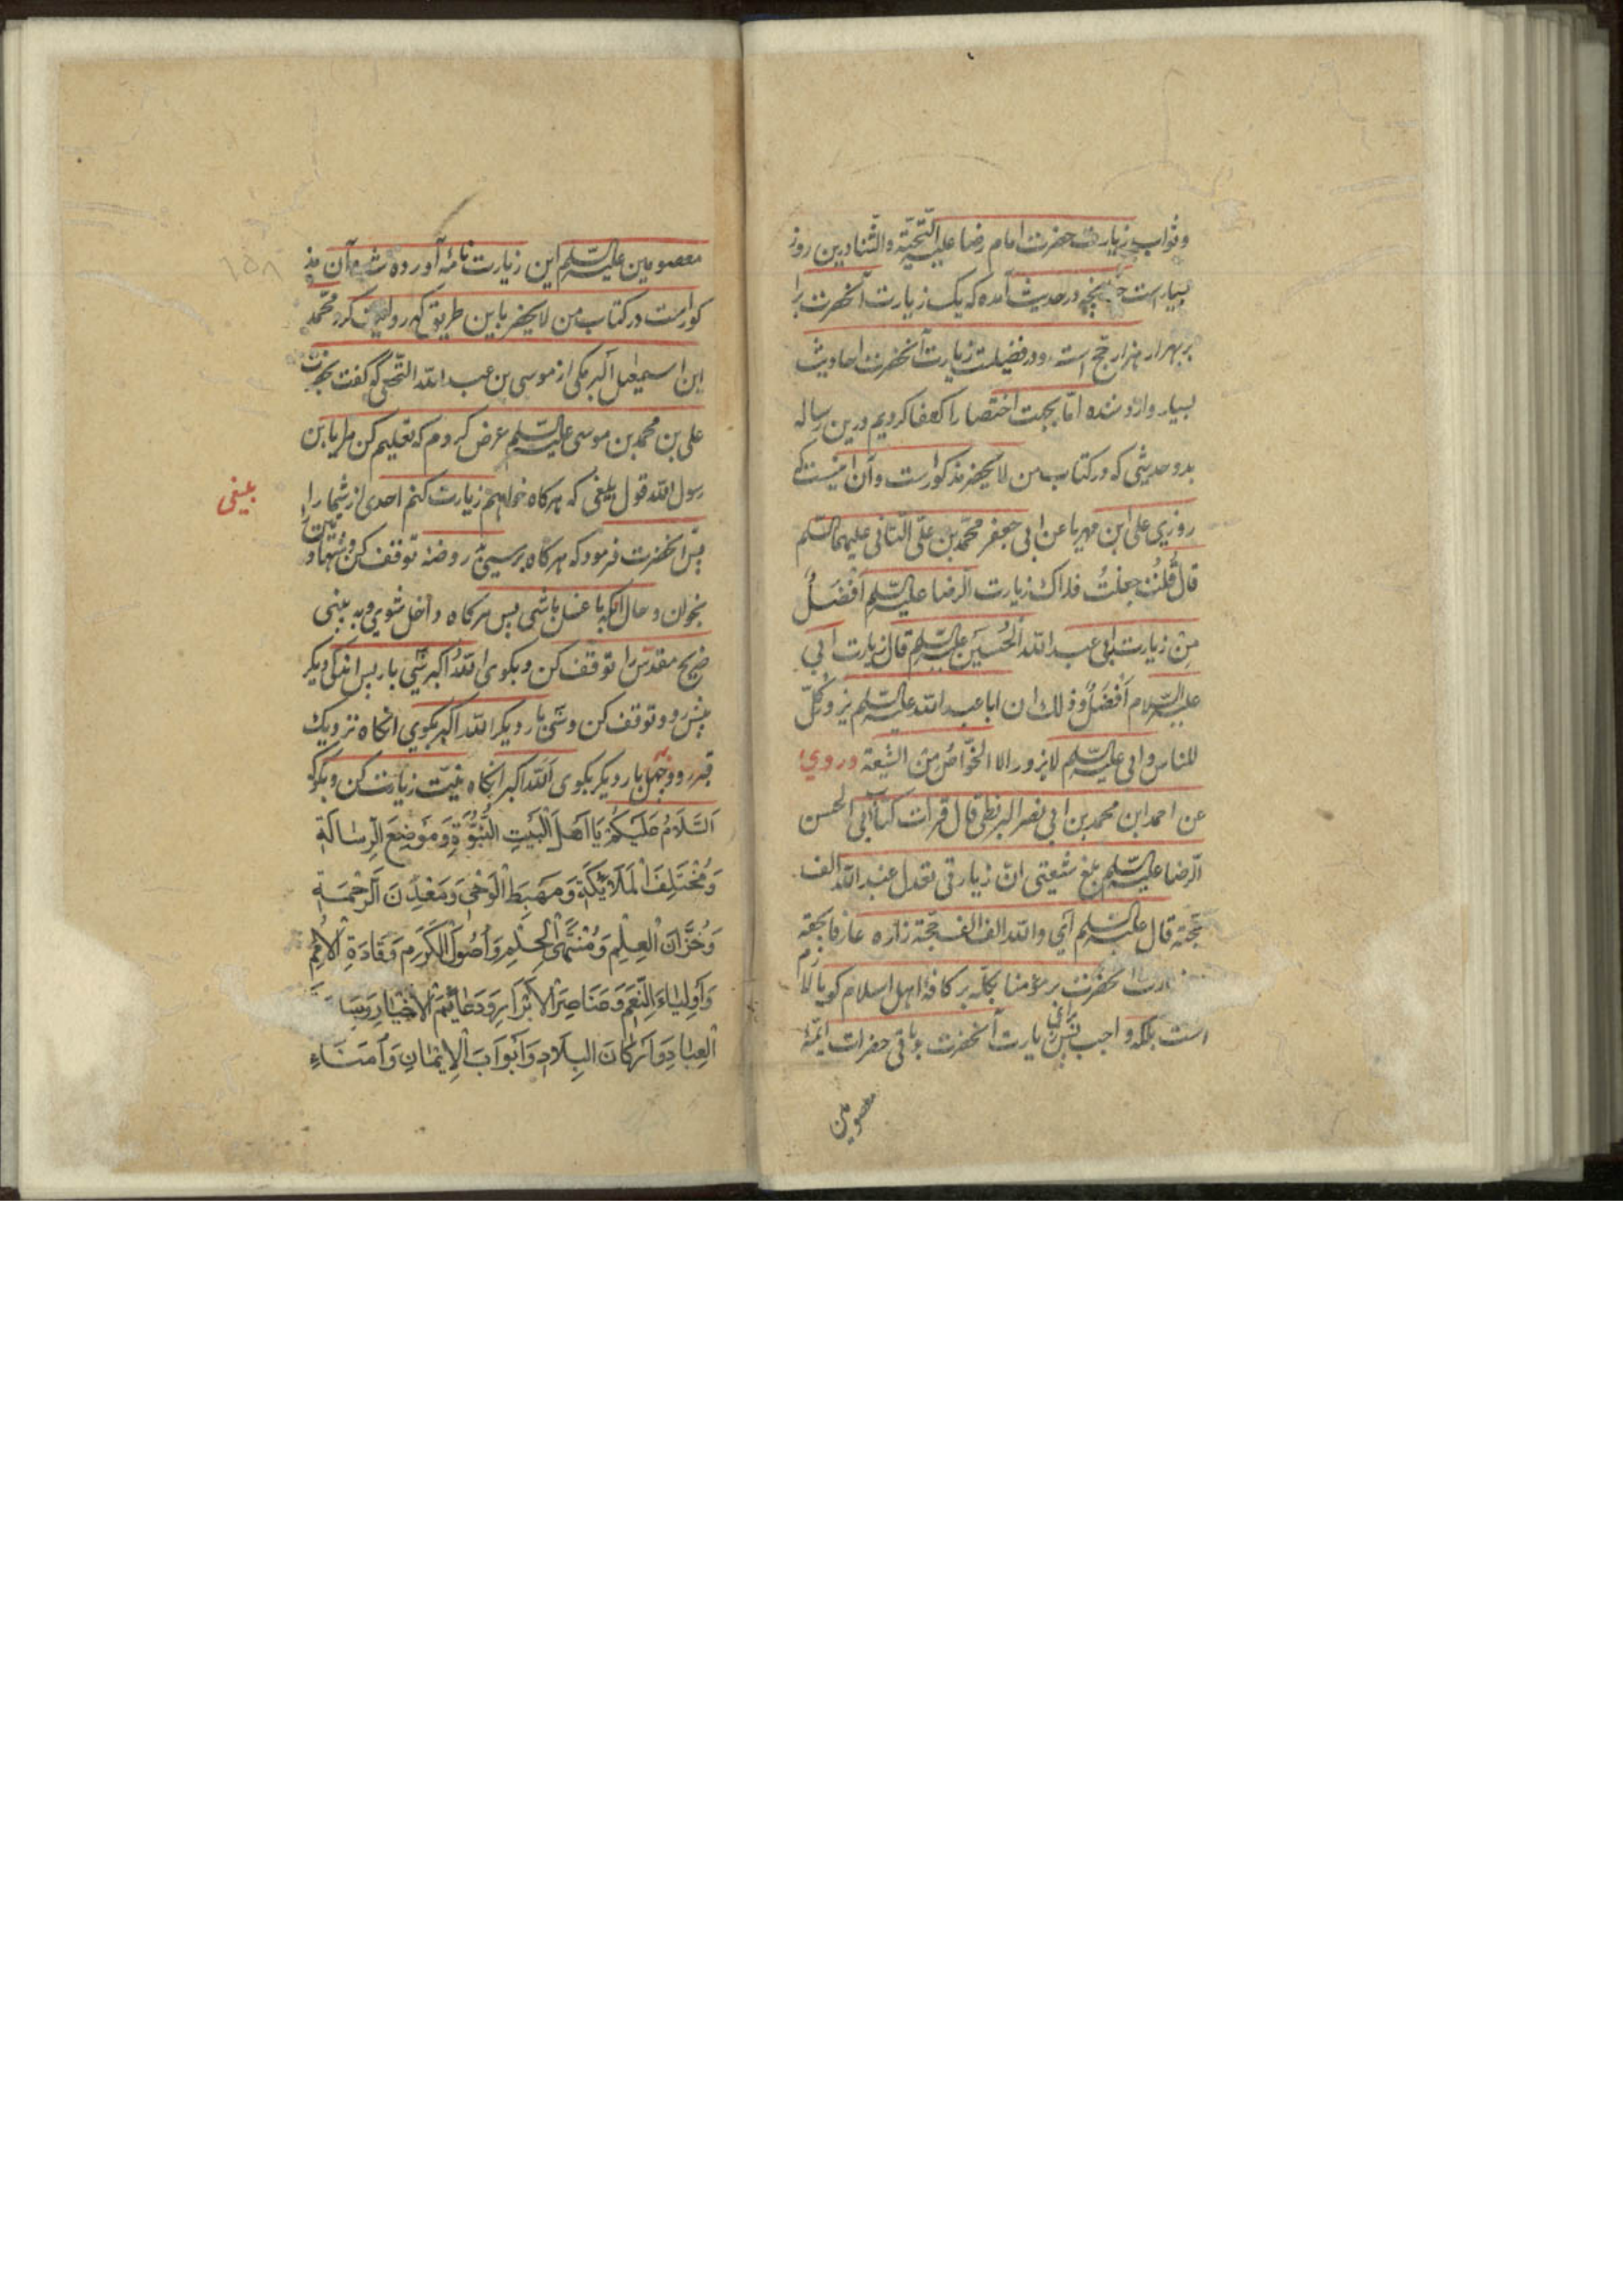 وثواب زیارت حضرت امام رضا علیه التحیّة والثنا درین روز
بسیار است چنانچه در حدیث آمده که یک زیارت آنحضرت برا
بر هزار هزار حج است و در فضیلت زیارت آنحضرت احادیث
بسیار وارد شده امّا بجهت اختصار اکتفا کردیم درین رساله
بدو حدیثی که در کتاب من لا یحضر مذکور است و آن اینست که
روزی علی ابن مهریا عن ابی جعفر محمّد بن علیّ الثانی علیهما السّلم
قال قُلتُ جعلتُ فداک زیارت الرّضا علیه السّلم أفضَلُ
مِن زیارت ابی عبد الله الحُسَین علیه السّلم قال زیارت ابی
علیه السّلام أفضَلُ وذلك ان ابا عبد الله علیه السّلم یزوره کلّ
للناس وابی علیه السّلم لا یزوره الا الخوّاصُ مِن الشیعة وروی
عن احمد ابن محمد بن ابی نصر البزنطی قال قرات کتاب ابی الحسن
الرّضا علیه السّلم بلغ شیعتی انّ زیارتی تعدل عند الله الف
حجّة قال علیه السّلم أی والله الف الف حجّة زاره عارفا بحقه
زیارت آنحضرت بر مؤمنا بلکه بر کافهٔ اهل اسلام کویا لازم
است بلکه واجب پس برای زیارت آنحضرت و باقی حضرات ائمّهٔ
معصومین
معصومین علیه السّلم این زیارت نامه آورده شد آن مذ
کور است در کتاب من لا یحضر باین طریق که روایت کرد محمّد
ابن اسمعیل البرمکی از موسی بن عبد الله النّخعی که گفت بحضرت
علی بن محمد بن موسی علیه السّلم عرض کردم که تعلیم کن مرا یا بن
رسول الله قول بلیغی که هرکاه خواهم زیارت کنم احدی از شما را
بلیغی
پس آنحضرت فرمود که هرکاه برسی بدر روضه توقف کن و شهادتین را
بخوان و حال آنکه با غسل باشی پس هرکاه داخل شوی و به بینی
ضریح مقدّس را توقف کن و بکوی الله اکبر سی بار پس اندکی دیکر
پیش رو و توقف کن و سی بار دیکر الله اکبر بکوی آنکاه نزدیک
قبر رو و چهل بار دیکر بکوی الله اکبر آنکاه نیّت زیارت کن و بکو که
اَلسَّلَامُ عَلَيْكُمْ يَا اَهْلَ الْبَيْتِ النُّبُوَّةِ وَ مَوْضِعَ الرِّسَالَةِ
وَمُخْتَلِفَ الْمَلَائِكَةِ وَمَهْبِطَ الْوَحْيِ وَمَعْدِنَ الرَّحْمَةِ
وَخُزَّانَ الْعِلْمِ وَمُنْتَهَى الْحِلْمِ وَاُصُولَ الْكَرَمِ وَقَادَةِ الْاُمَمِ
وَاَوْلِيَاءَ النِّعَمِ وَعَنَاصِرَ الْاَبْرَارِ وَدَعَائِمَ الْاَخْيَارِ وَسَاسَةَ
الْعِبَادِ وَاَرْكَانَ الْبِلَادِ وَاَبْوَابَ الْاِيْمَانِ وَاُمَنَاءِ
۱۵۸